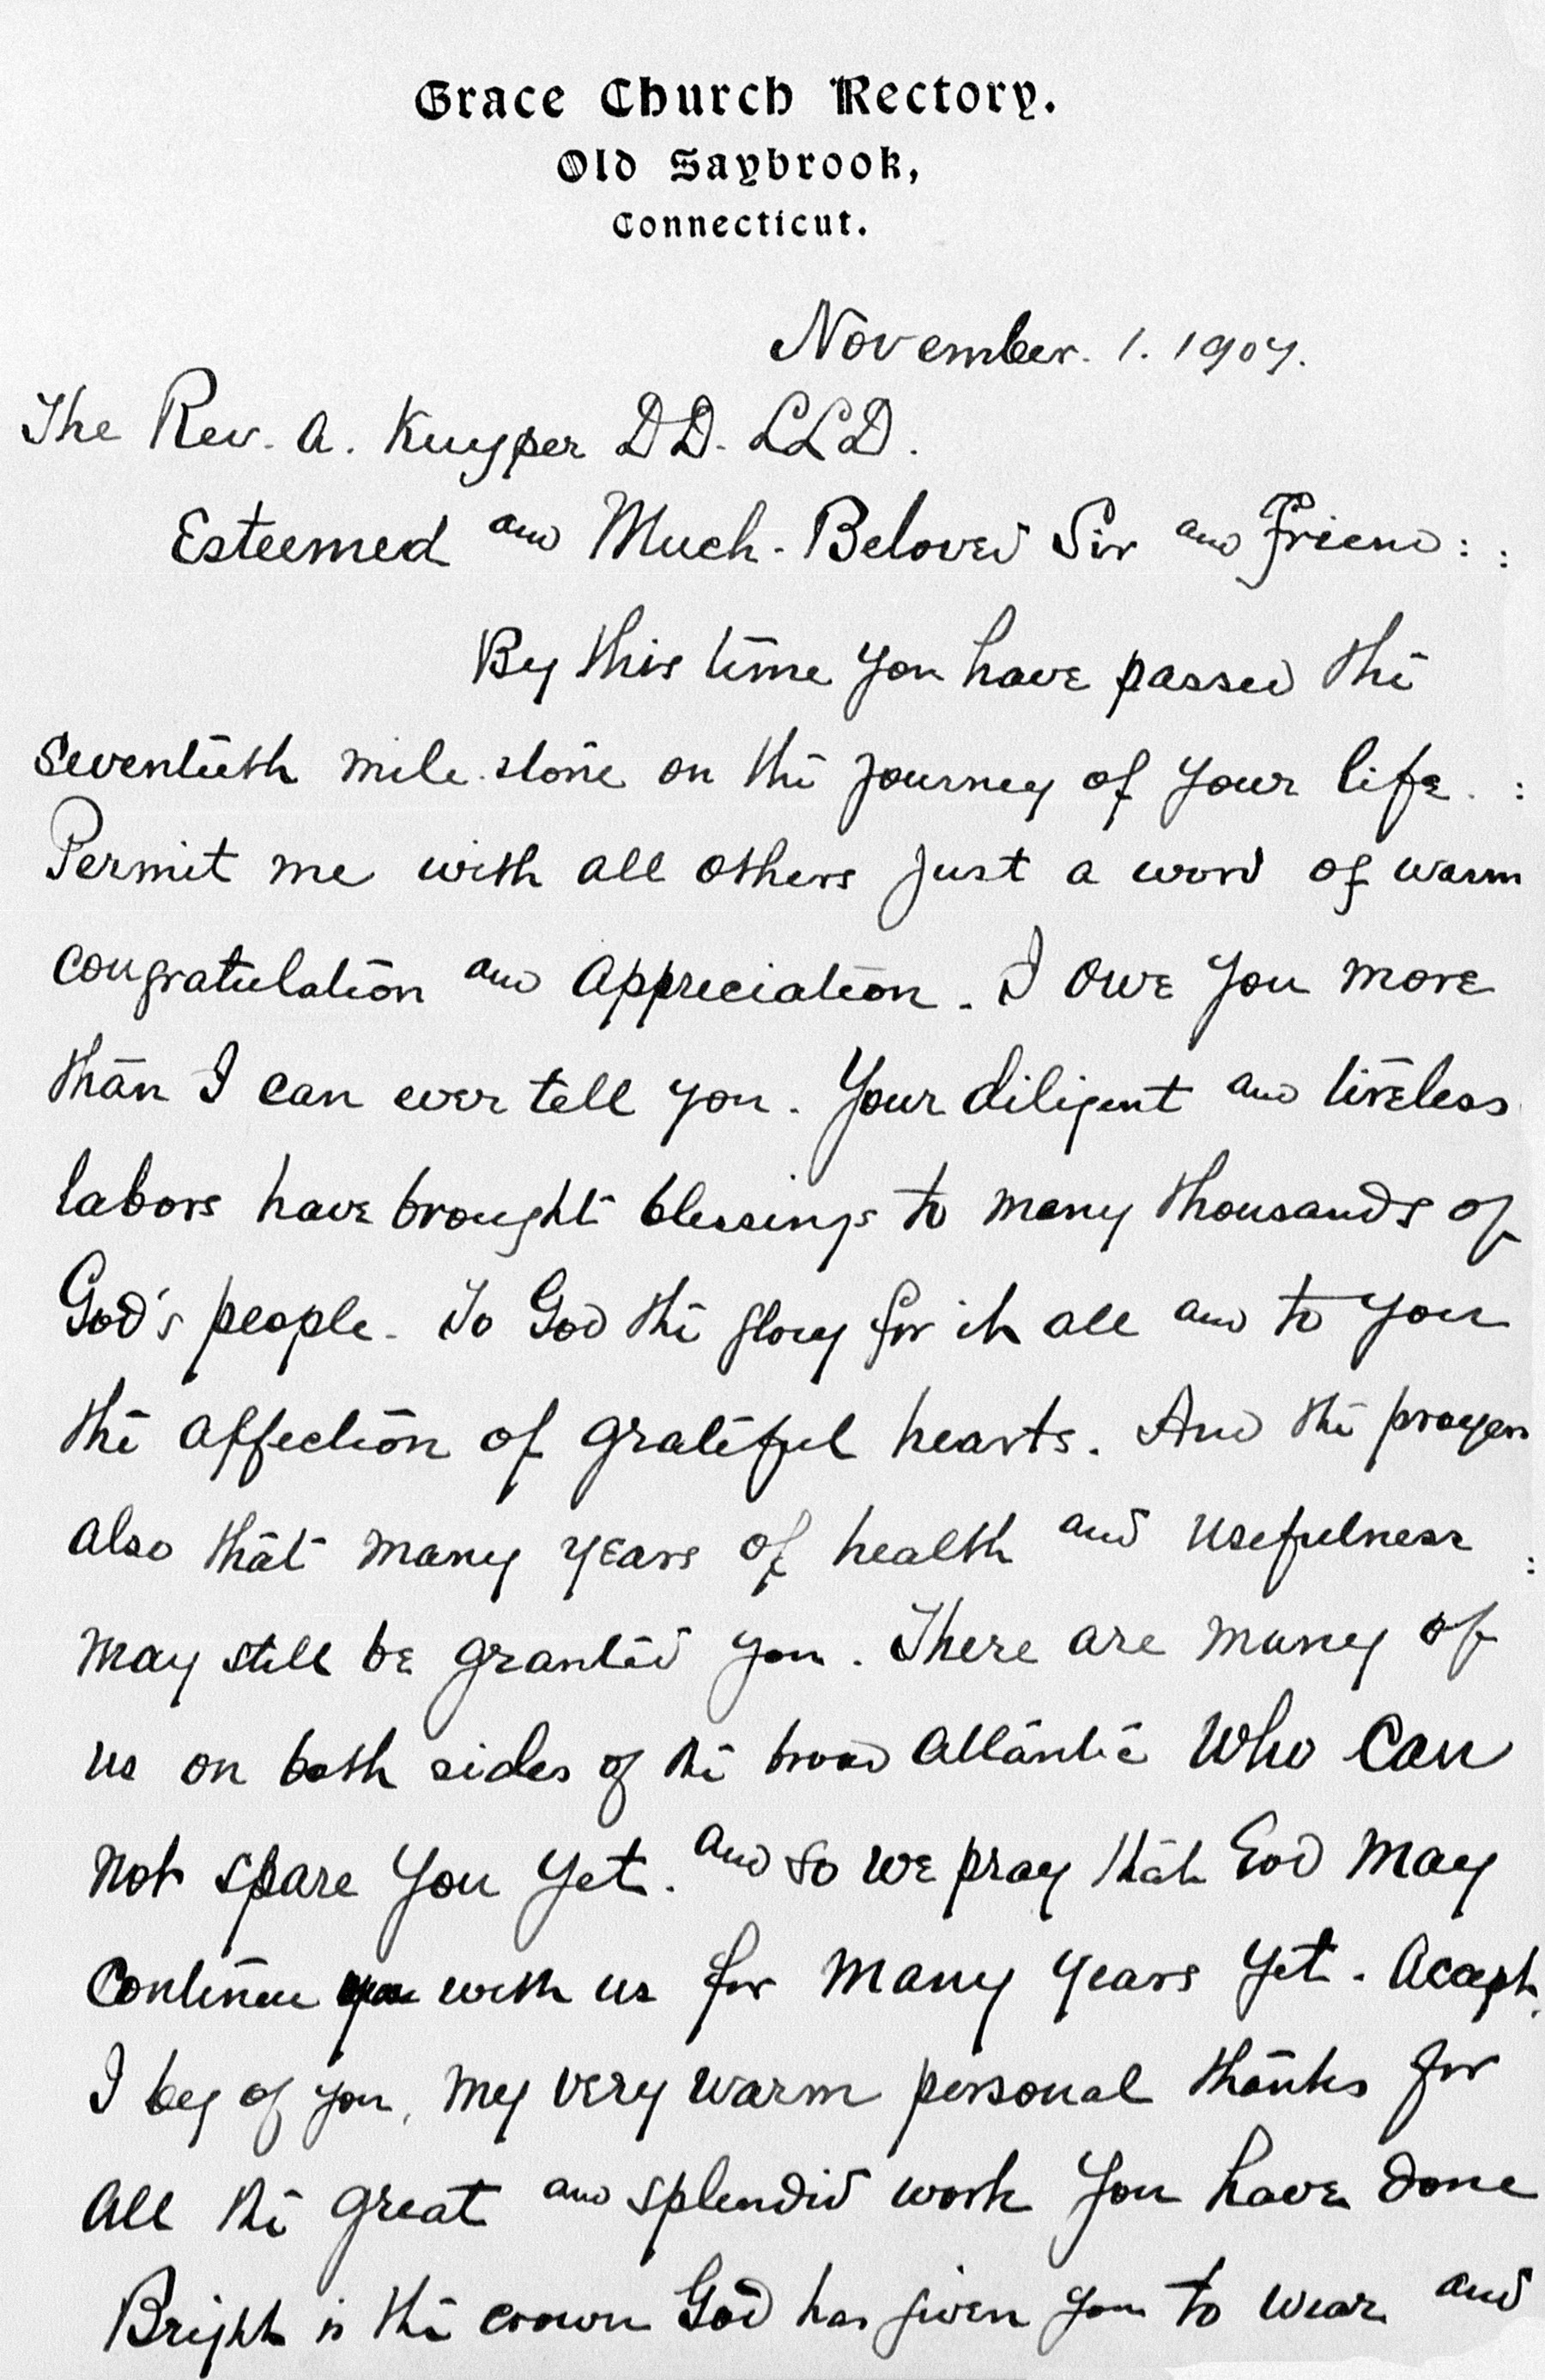 Grace Church Rectory.
Old Saybrook,
Connecticut.
November. 1. 1907.
The Rev. A. Kuyper DD. LLD.
Esteemed and Much-Beloved Sir and Friend: :
By this time you have passed the
Seventieth mile stone on the journey of your life. :
Permit me with all others just a word of warm
congratulation and appreciation. I owe you more
than I can ever tell you. Your diligent and tireless
labors have brought blessings to many thousands of
God's people. To God the glory for it all and to you
the affection of grateful hearts. And the prayers
also that many years of health and usefulness :
may still be granted you. There are many of
us on both sides of the broad Atlantic who can
not spare you yet. And so we pray that God may
continue you with us for many years yet. Accept,
I beg of you, my very warm personal thanks for
all the great and splendid work you have done
Bright is the crown God has given you to wear and